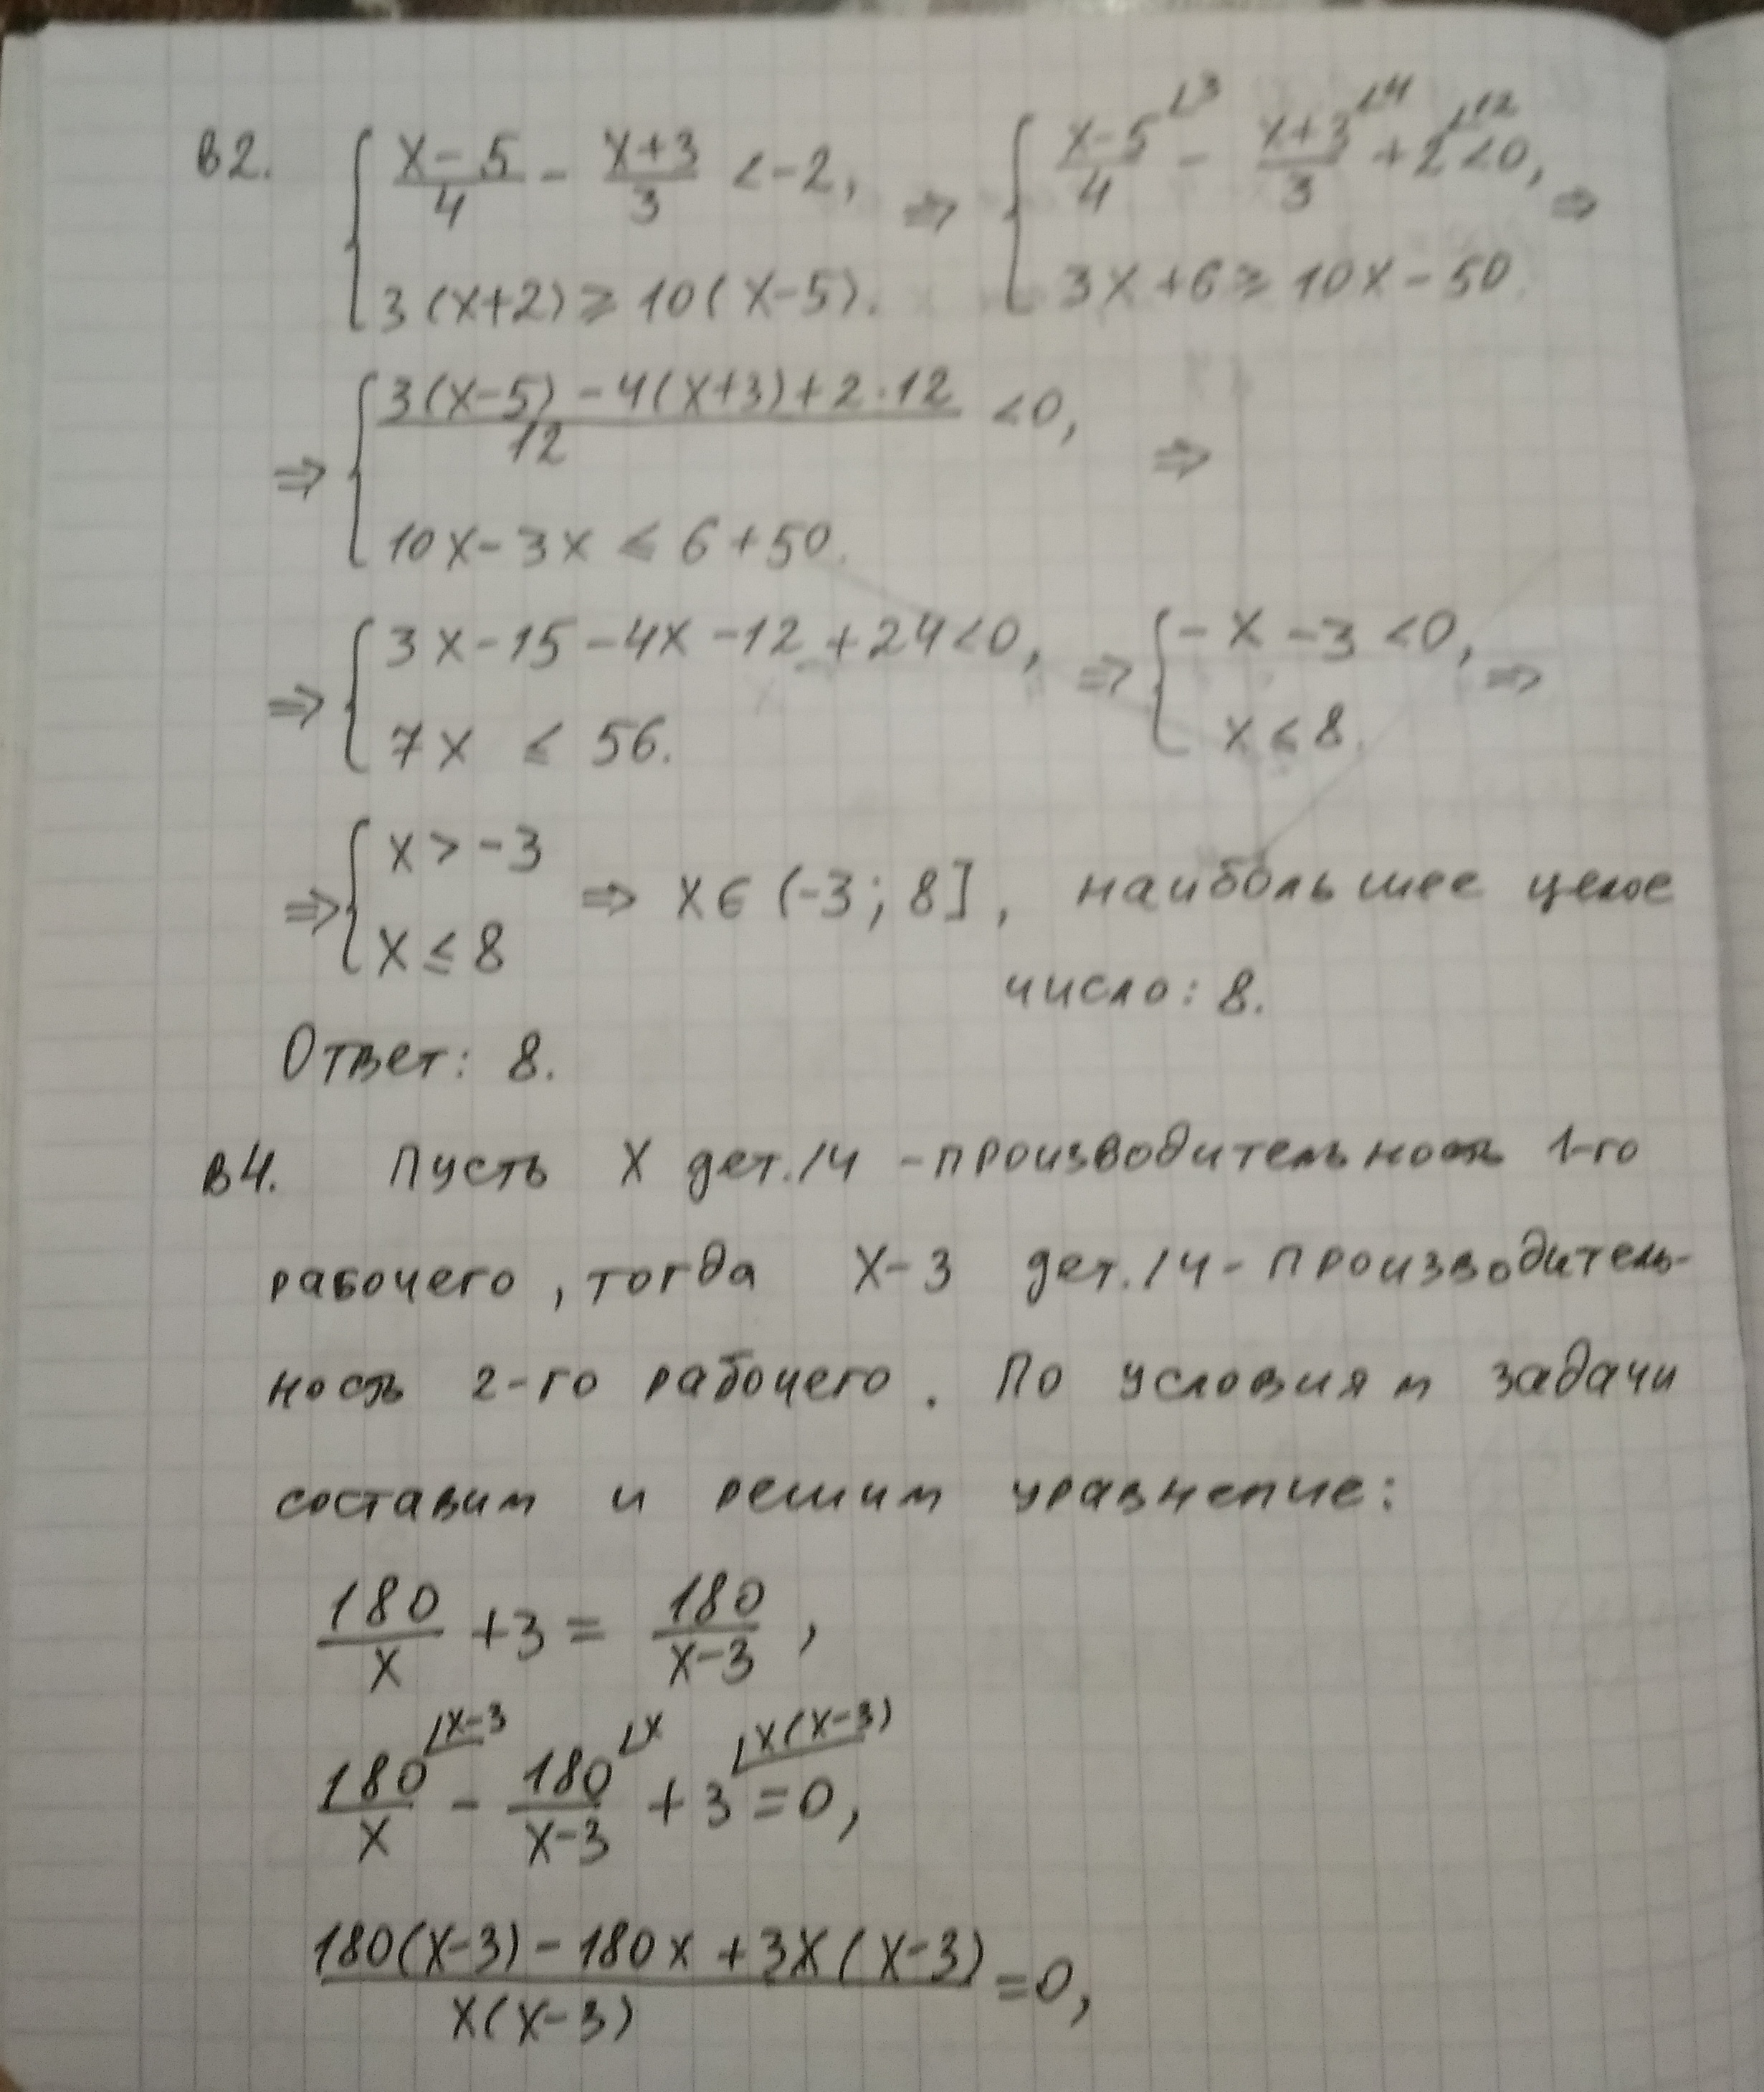 В2. { (x-5)/4 - (x+3)/3 < -2, ⇒ { (x-5)/4 ∟3 - (x+3)/3 ∟4 + 2 ∟12 < 0, ⇒
3(x+2) ≥ 10(x-5). 3x+6 ≥ 10x-50.
⇒ { (3(x-5) - 4(x+3) + 2·12)/12 < 0, ⇒
10x - 3x ≤ 6 + 50.
⇒ { 3x - 15 - 4x - 12 + 24 < 0, ⇒ { -x - 3 < 0, ⇒
7x ≤ 56. x ≤ 8.
⇒ { x > -3
x ≤ 8 ⇒ x ∈ (-3; 8], наибольшее целое
число: 8.
Ответ: 8.
В4. Пусть x дет./ч - производительность 1-го
рабочего, тогда x-3 дет./ч - производитель-
ность 2-го рабочего. По условиям задачи
составим и решим уравнение:
180/x + 3 = 180/(x-3),
180/x ∟x-3 - 180/(x-3) ∟x + 3 ∟x(x-3) = 0,
(180(x-3) - 180x + 3x(x-3))/(x(x-3)) = 0,